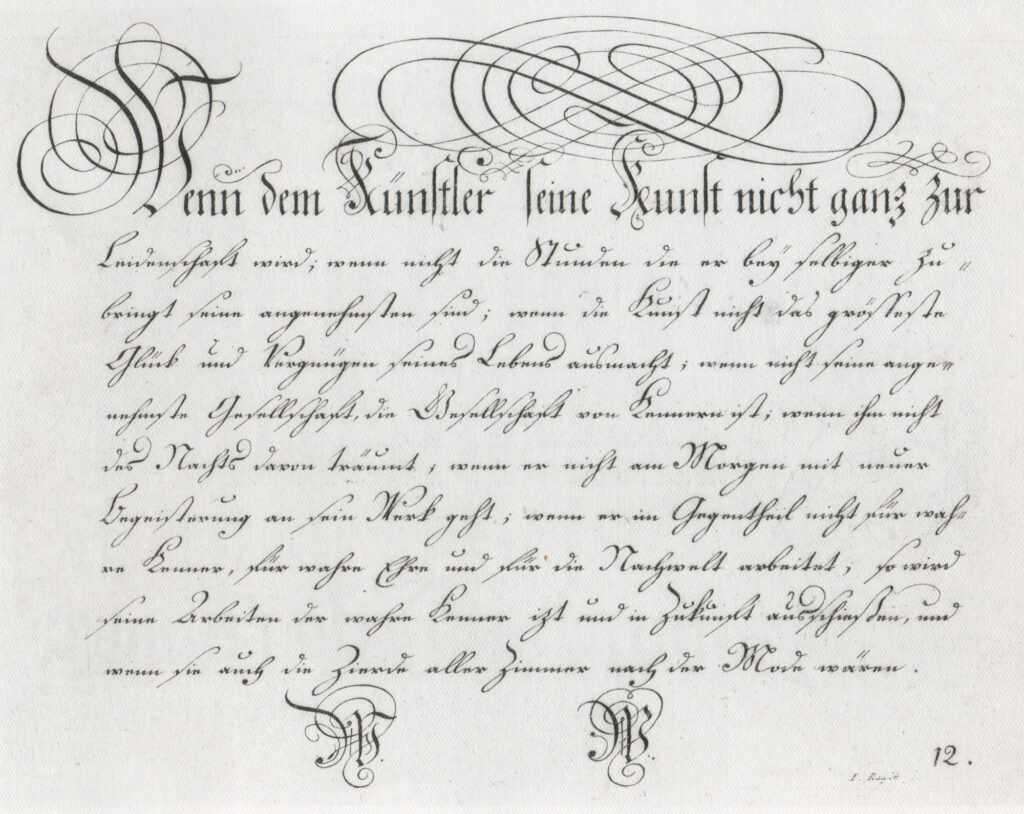 Wenn dem Künstler seine Kunst nicht ganz zur
Leidenschaft wird; wenn nicht die Stunden die er bey selbiger zu=
bringt seine angenehmsten sind; wenn die Kunst nicht das grösseste
Glück und Vergnügen seines Lebens ausmacht; wenn nicht seine ange=
nehmste Gesellschaft, die Gesellschaft von Kennern ist; wenn ihm nicht
des Nachts davon träumt; wenn er nicht am Morgen mit neuer
Begeisterung an sein Werk geht; wenn er im Gegentheil nicht für wah=
re Kenner, für wahre Ehre und für die Nachwelt arbeitet; so wird
seine Arbeiten der wahre Kenner izt und in Zukunft ausschießen, und
wenn sie auch die Zierde aller Zimmer nach der Mode wären.
12.